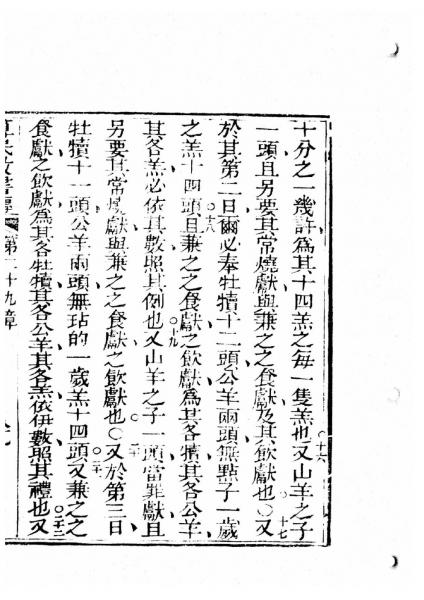 十分之一幾許為其十四羔之每一隻羔也〇十六又山羊之子
一頭且另要其常燒獻與兼之之食獻及其飲獻也〇十七又
於其第二日爾必奉牡犢十二頭公羊兩頭無點子一歲
之羔十四頭〇十八且兼之之食獻之飲獻為其各犢其各公羊
其各羔必依其數照其例也〇十九又山羊之子一頭當罪獻且
另要其常燒獻與兼之之食獻之飲獻也〇二十又於第三日
牡犢十一頭公羊兩頭無玷的一歲羔十四頭〇二一又兼之之
食獻之飲獻為其各牡犢其各公羊其各羔依伊數照其禮也〇二二又
第二十九章